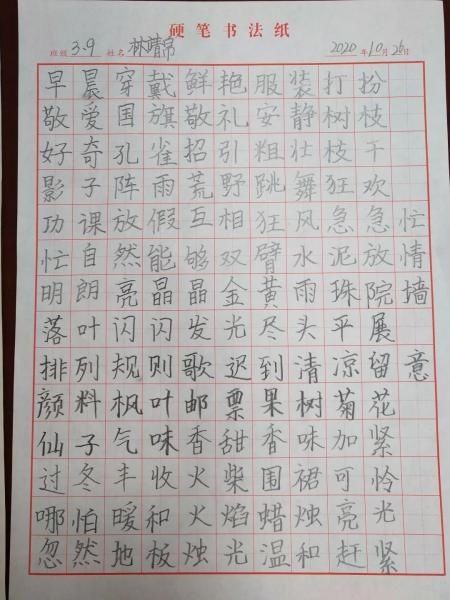 硬笔书法纸
班级 3.9 姓名 林靖帛 2020年10月26日
早晨穿戴鲜艳服装打扮
敬爱国旗敬礼安静树枝
好奇孔雀招引粗壮枝干
影子阵雨荒野跳舞狂欢
功课放假互相狂风急急忙
忙自然能够双臂水泥放情
明朗亮晶晶金黄雨珠院墙
落叶闪闪发光尽头平展
排列规则歌迟到清凉留意
颜料枫叶邮票果树菊花
仙子气味香甜香味加紧
过冬丰收火柴围裙可怜
哪怕暖和火焰蜡烛亮光
忽然地板烛光温和赶紧